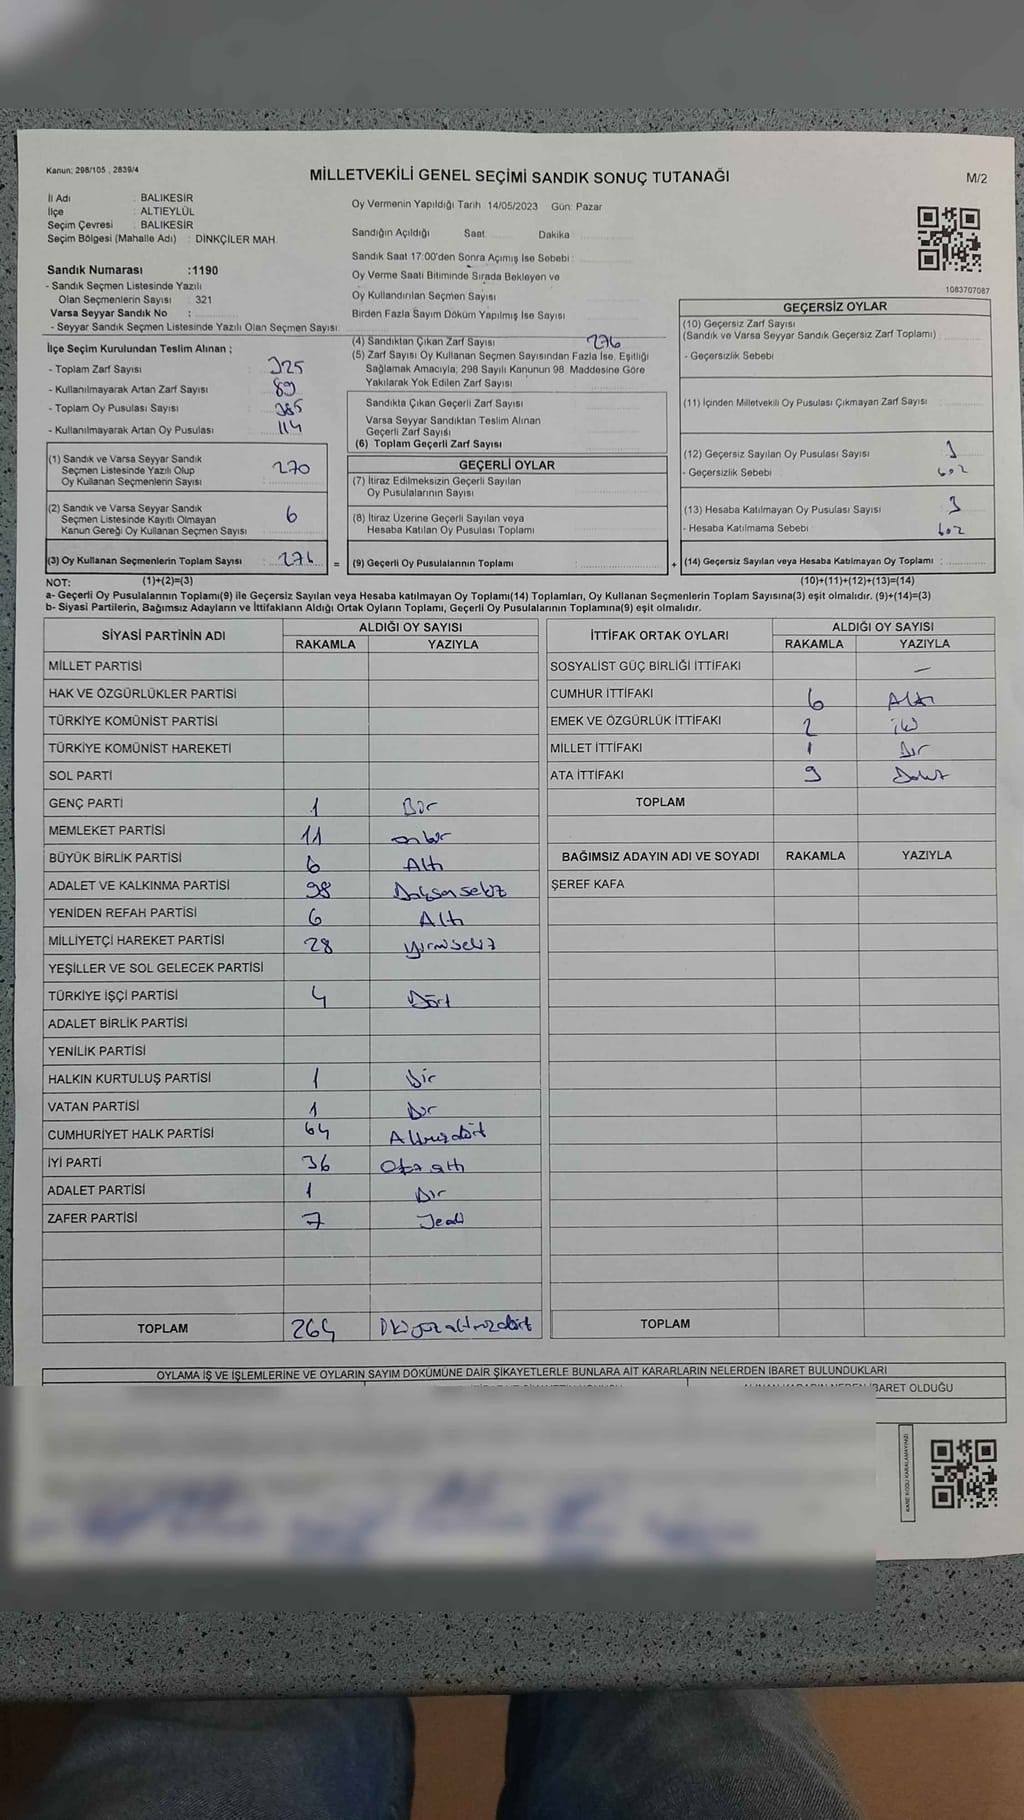 Kanun: 298/105 , 2839/4
MİLLETVEKİLİ GENEL SEÇİMİ SANDIK SONUÇ TUTANAĞI
M/2
İl Adı : BALIKESİR
İlçe : ALTIEYLÜL
Seçim Çevresi : BALIKESİR
Seçim Bölgesi (Mahalle Adı) : DİNKÇİLER MAH.
Sandık Numarası :1190
- Sandık Seçmen Listesinde Yazılı
Olan Seçmenlerin Sayısı : 321
Varsa Seyyar Sandık No :
- Seyyar Sandık Seçmen Listesinde Yazılı Olan Seçmen Sayısı:
Oy Vermenin Yapıldığı Tarih :14/05/2023 Gün: Pazar
Sandığın Açıldığı Saat Dakika
Sandık Saat 17:00'den Sonra Açımış İse Sebebi :
Oy Verme Saati Bitiminde Sırada Bekleyen ve
Oy Kullandırılan Seçmen Sayısı
Birden Fazla Sayım Döküm Yapılmış İse Sayısı
1083707087
İlçe Seçim Kurulundan Teslim Alınan ;
- Toplam Zarf Sayısı : 325
- Kullanılmayarak Artan Zarf Sayısı : 89
- Toplam Oy Pusulası Sayısı : 385
- Kullanılmayarak Artan Oy Pusulası : 114
(1) Sandık ve Varsa Seyyar Sandık
Seçmen Listesinde Yazılı Olup
Oy Kullanan Seçmenlerin Sayısı : 270
(2) Sandık ve Varsa Seyyar Sandık
Seçmen Listesinde Kayıtlı Olmayan
Kanun Gereği Oy Kullanan Seçmen Sayısı 6
(3) Oy Kullanan Seçmenlerin Toplam Sayısı : 276 =
(4) Sandıktan Çıkan Zarf Sayısı 276
(5) Zarf Sayısı Oy Kullanan Seçmen Sayısından Fazla İse, Eşitliği
Sağlamak Amacıyla; 298 Sayılı Kanunun 98. Maddesine Göre
Yakılarak Yok Edilen Zarf Sayısı
Sandıkta Çıkan Geçerli Zarf Sayısı
Varsa Seyyar Sandıktan Teslim Alınan
Geçerli Zarf Sayısı
(6) Toplam Geçerli Zarf Sayısı
GEÇERLİ OYLAR
(7) İtiraz Edilmeksizin Geçerli Sayılan
Oy Pusulalarının Sayısı
(8) İtiraz Üzerine Geçerli Sayılan veya
Hesaba Katılan Oy Pusulası Toplamı
(9) Geçerli Oy Pusulalarının Toplamı +
GEÇERSİZ OYLAR
(10) Geçersiz Zarf Sayısı
(Sandık ve Varsa Seyyar Sandık Geçersiz Zarf Toplamı)
- Geçersizlik Sebebi
(11) İçinden Milletvekili Oy Pusulası Çıkmayan Zarf Sayısı
(12) Geçersiz Sayılan Oy Pusulası Sayısı
- Geçersizlik Sebebi
(13) Hesaba Katılmayan Oy Pusulası Sayısı 3
- Hesaba Katılmama Sebebi
(14) Geçersiz Sayılan veya Hesaba Katılmayan Oy Toplamı :
NOT: (1)+(2)=(3) (10)+(11)+(12)+(13)=(14)
a- Geçerli Oy Pusulalarının Toplamı(9) ile Geçersiz Sayılan veya Hesaba katılmayan Oy Toplamı(14) Toplamları, Oy Kullanan Seçmenlerin Toplam Sayısına(3) eşit olmalıdır. (9)+(14)=(3)
b- Siyasi Partilerin, Bağımsız Adayların ve İttifakların Aldığı Ortak Oyların Toplamı, Geçerli Oy Pusulalarının Toplamına(9) eşit olmalıdır.
SİYASİ PARTİNİN ADI ALDIĞI OY SAYISI
RAKAMLA YAZIYLA
MİLLET PARTİSİ
HAK VE ÖZGÜRLÜKLER PARTİSİ
TÜRKİYE KOMÜNİST PARTİSİ
TÜRKİYE KOMÜNİST HAREKETİ
SOL PARTİ
GENÇ PARTİ 1 Bir
MEMLEKET PARTİSİ 11 onbir
BÜYÜK BİRLİK PARTİSİ 6 Altı
ADALET VE KALKINMA PARTİSİ 98 Doksansekiz
YENİDEN REFAH PARTİSİ 6 Altı
MİLLİYETÇİ HAREKET PARTİSİ 28 yirmisekiz
YEŞİLLER VE SOL GELECEK PARTİSİ
TÜRKİYE İŞÇİ PARTİSİ 4 Dört
ADALET BİRLİK PARTİSİ
YENİLİK PARTİSİ
HALKIN KURTULUŞ PARTİSİ 1 Bir
VATAN PARTİSİ 1 Bir
CUMHURİYET HALK PARTİSİ 64 Altmışdört
İYİ PARTİ 36 Otuz altı
ADALET PARTİSİ 1 Bir
ZAFER PARTİSİ 7 Yedi
TOPLAM 264 İkiyüzaltmışdört
İTTİFAK ORTAK OYLARI ALDIĞI OY SAYISI
RAKAMLA YAZIYLA
SOSYALİST GÜÇ BİRLİĞİ İTTİFAKI —
CUMHUR İTTİFAKI 6 Altı
EMEK VE ÖZGÜRLÜK İTTİFAKI 2 iki
MİLLET İTTİFAKI 1 Bir
ATA İTTİFAKI 9 Dokuz
TOPLAM
BAĞIMSIZ ADAYIN ADI VE SOYADI RAKAMLA YAZIYLA
ŞEREF KAFA
TOPLAM
OYLAMA İŞ VE İŞLEMLERİNE VE OYLARIN SAYIM DÖKÜMÜNE DAİR ŞİKAYETLERLE BUNLARA AİT KARARLARIN NELERDEN İBARET BULUNDUKLARI
İBARET OLDUĞU